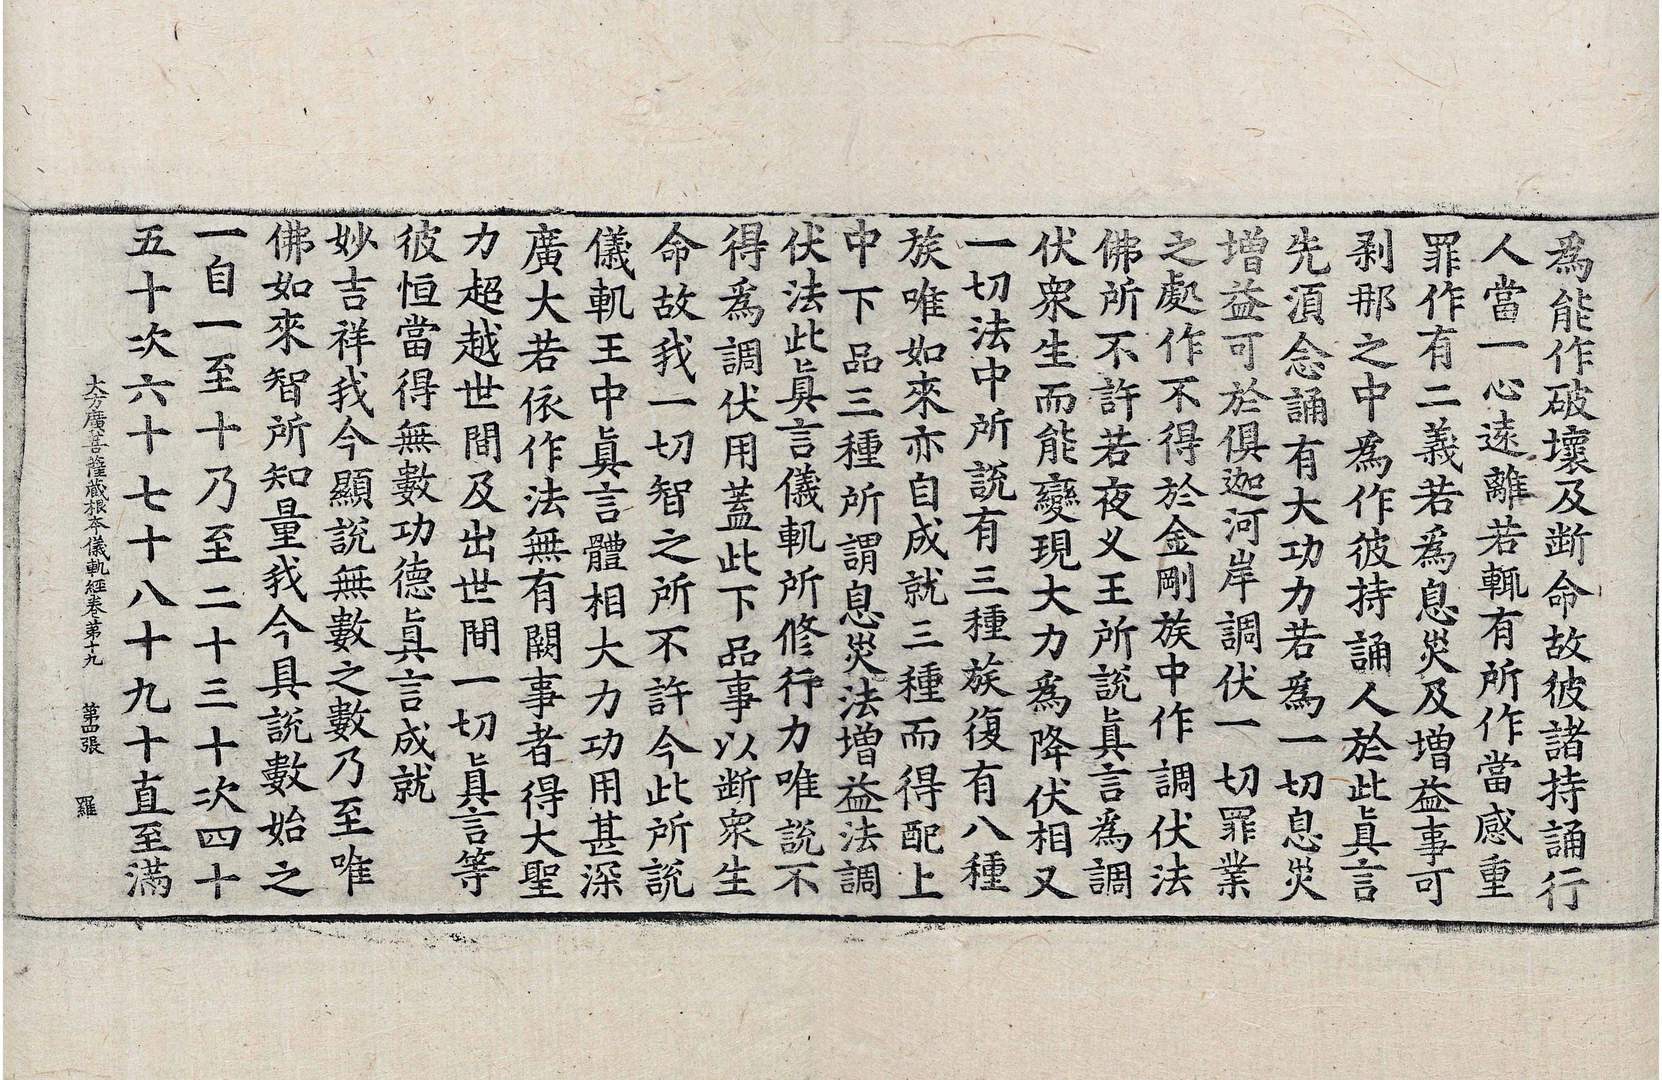 爲能作破壞及断命故彼諸持誦行
人當一心遠離若輒有所作當感重
罪作有二義若爲息災及増益事可
刹那之中爲作彼持誦人於此眞言
先湏念誦有大功力若爲一切息災
増益可於俱迦河岸調伏一切罪業
之處作不得於金剛族中作調伏法
佛所不許若夜叉王所說眞言爲調
伏衆生而能變現大力爲降伏相又
一切法中所說有三種族復有八種
族唯如來亦自成就三種而得配上
中下品三種所謂息災法増益法調
伏法此眞言儀軌所修行力唯說不
得爲調伏用蓋此下品事以断衆生
命故我一切智之所不許今此所說
儀軌王中眞言體相大力功用甚深
廣大若依作法無有闕事者得大聖
力超越世間及出世間一切眞言等
彼恒當得無數功德眞言成就
妙吉祥我今顯說無數之數乃至唯
佛如來智所知量我今具說數始之
一自一至十乃至二十三十次四十
五十次六十七十八十九十直至滿
大方廣菩薩藏根本儀軌經卷第十九 第四張 羅